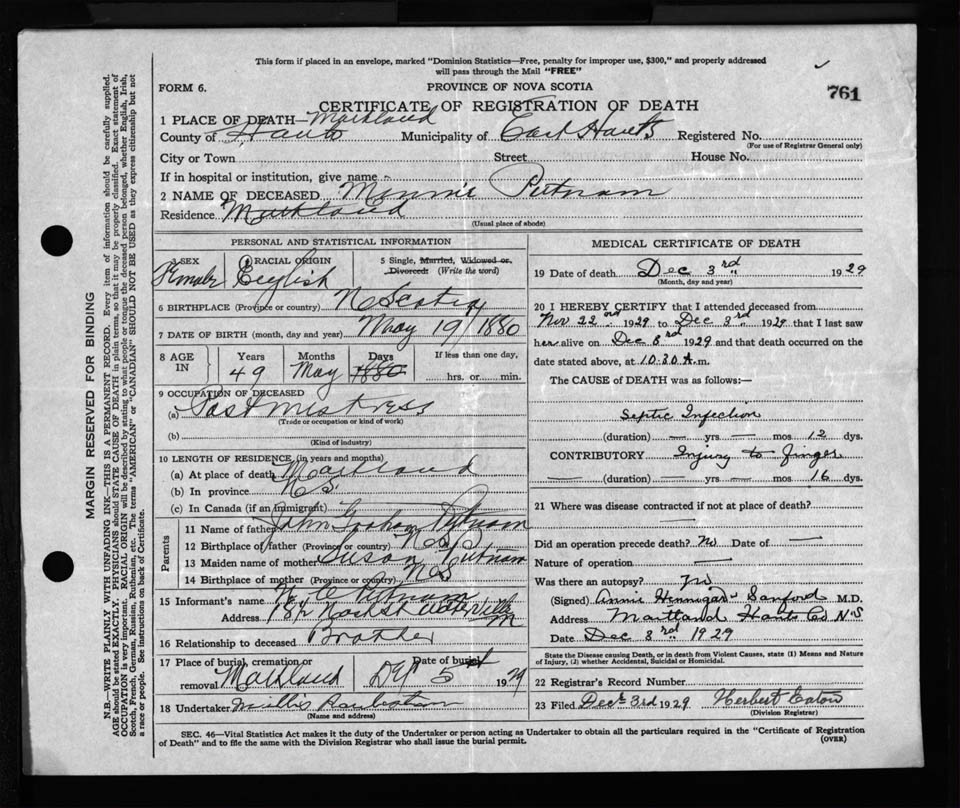 This form if placed in an envelope, marked "Dominion Statistics—Free, penalty for improper use, $300," and properly addressed
will pass through the Mail "FREE"
FORM 6.
PROVINCE OF NOVA SCOTIA
761
CERTIFICATE OF REGISTRATION OF DEATH
1 PLACE OF DEATH— Maitland
County of Hants Municipality of East Hants Registered No.
(For use of Registrar General only)
City or Town Street House No.
If in hospital or institution, give name
2 NAME OF DECEASED Minnie Putnam
Residence Maitland
(Usual place of abode)
PERSONAL AND STATISTICAL INFORMATION
SEX Female
RACIAL ORIGIN English
5 Single, Married, Widowed or, Divorced: (Write the word)
6 BIRTHPLACE (Province or country) N Scotia
7 DATE OF BIRTH (month, day and year) May 19/1880
8 AGE IN Years 49 Months May Days 1880 If less than one day, hrs. or min.
9 OCCUPATION OF DECEASED
(a) Post Mistress
(Trade or occupation or kind of work)
(b)
(Kind of industry)
10 LENGTH OF RESIDENCE (in years and months)
(a) At place of death Maitland
(b) In province N S
(c) In Canada (if an immigrant)
Parents
11 Name of father John Graham Putnam
12 Birthplace of father (Province or country) N S
13 Maiden name of mother Susa Putnam
14 Birthplace of mother (Province or country) N S
15 Informant's name Putnam
Address 184 St Waterville M
16 Relationship to deceased Brother
17 Place of burial, cremation or removal Maitland
Date of burial Dec 5 1929
18 Undertaker Willis
(Name and address)
MEDICAL CERTIFICATE OF DEATH
19 Date of death Dec 3rd 1929
(Month, day and year)
20 I HEREBY CERTIFY that I attended deceased from
Nov 22nd 1929 to Dec 3rd 1929 that I last saw
her alive on Dec 3rd 1929 and that death occurred on the
date stated above, at 10.30 A.m.
The CAUSE OF DEATH was as follows:—
Septic Infection
(duration) — yrs — mos 12 dys.
CONTRIBUTORY Injury to finger
— (duration) — yrs. — mos. 16 dys.
21 Where was disease contracted if not at place of death?
—
Did an operation precede death? No Date of —
Nature of operation —
Was there an autopsy? No
(Signed) Annie Hennigar Sanford M.D.
Address Maitland Hants Co N S
Date Dec 3rd 1929
State the Disease causing Death, or in death from Violent Causes, state (1) Means and Nature
of Injury, (2) whether Accidental, Suicidal or Homicidal.
22 Registrar's Record Number
23 Filed Dec 3rd 1929 Herbert Eaton
(Division Registrar)
SEC. 46—Vital Statistics Act makes it the duty of the Undertaker or person acting as Undertaker to obtain all the particulars required in the "Certificate of Registration
of Death" and to file the same with the Division Registrar who shall issue the burial permit.
(OVER)
MARGIN RESERVED FOR BINDING
N.B.—WRITE PLAINLY WITH UNFADING INK—THIS IS A PERMANENT RECORD. Every item of information should be carefully supplied.
AGE should be stated EXACTLY. PHYSICIANS should STATE CAUSE OF DEATH in plain terms, so that it may be properly classified. Exact statement of
OCCUPATION is very important. RACIAL ORIGIN will be described by stating to what people or tongue the deceased person belonged, whether English, Irish,
Scotch, French, German, Russian, Ruthenian, etc. The terms "AMERICAN" or "CANADIAN" SHOULD NOT BE USED as they express citizenship but not
a race or people. See instructions on back of Certificate.